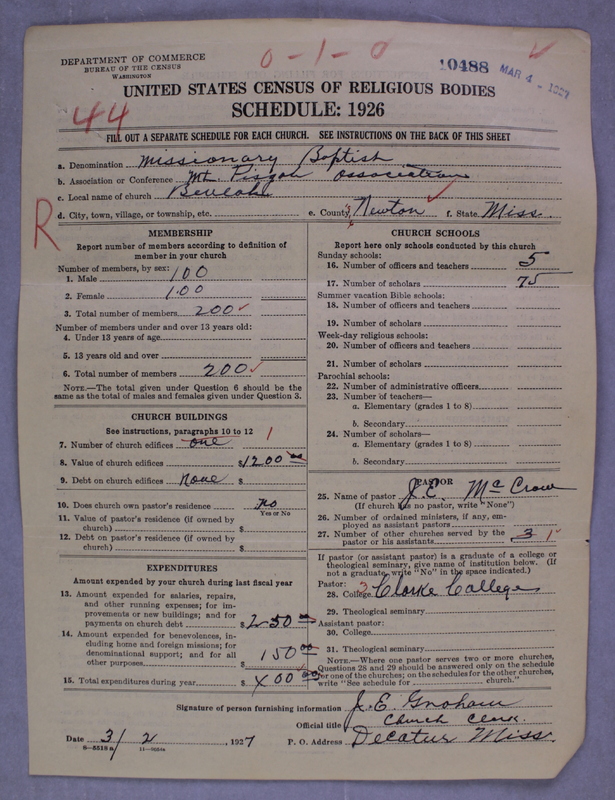 0-1-0
10488 MAR 4 - 1927
DEPARTMENT OF COMMERCE
BUREAU OF THE CENSUS
WASHINGTON
UNITED STATES CENSUS OF RELIGIOUS BODIES
SCHEDULE: 1926
44
FILL OUT A SEPARATE SCHEDULE FOR EACH CHURCH. SEE INSTRUCTIONS ON THE BACK OF THIS SHEET
a. Denomination Missionary Baptist
b. Association or Conference Mt. Pisgah Association
c. Local name of church Beulah
d. City, town, village, or township, etc. e. County, Newton f. State, Miss.
R
MEMBERSHIP
Report number of members according to definition of
member in your church
Number of members, by sex:
1. Male 100
2. Female 100
3. Total number of members 200
Number of members under and over 13 years old:
4. Under 13 years of age
5. 13 years old and over
6. Total number of members 200
NOTE.—The total given under Question 6 should be the
same as the total of males and females given under Question 3.
CHURCH BUILDINGS
See instructions, paragraphs 10 to 12
7. Number of church edifices one 1
8. Value of church edifices $1200 00
9. Debt on church edifices None
10. Does church own pastor's residence No
Yes or No
11. Value of pastor's residence (if owned by
church) $
12. Debt on pastor's residence (if owned by
church) $
EXPENDITURES
Amount expended by your church during last fiscal year
13. Amount expended for salaries, repairs,
and other running expenses; for im-
provements or new buildings; and for
payments on church debt $250 00
14. Amount expended for benevolences, in-
cluding home and foreign missions; for
denominational support; and for all
other purposes 150 00
15. Total expenditures during year $400 00
CHURCH SCHOOLS
Report here only schools conducted by this church
Sunday schools:
16. Number of officers and teachers 5
17. Number of scholars 75
Summer vacation Bible schools:
18. Number of officers and teachers
19. Number of scholars
Week-day religious schools:
20. Number of officers and teachers
21. Number of scholars
Parochial schools:
22. Number of administrative officers
23. Number of teachers—
a. Elementary (grades 1 to 8)
b. Secondary
24. Number of scholars—
a. Elementary (grades 1 to 8)
b. Secondary
PASTOR
25. Name of pastor J. E. McCraw
(If church has no pastor, write "None")
26. Number of ordained ministers, if any, em-
ployed as assistant pastors
27. Number of other churches served by the
pastor or his assistants 3 1
If pastor (or assistant pastor) is a graduate of a college or
theological seminary, give name of institution below. (If
not a graduate, write "No" in the space indicated.)
Pastor:
28. College 3 Clarke College
29. Theological seminary
Assistant pastor:
30. College
31. Theological seminary
NOTE.—Where one pastor serves two or more churches,
Questions 28 and 29 should be answered only on the schedule
for one of the churches; on the schedules for the other churches,
write "See schedule for church."
Signature of person furnishing information J. E. Graham
Official title Church Clerk.
Date 3/2, 1927 P. O. Address Decatur Miss.